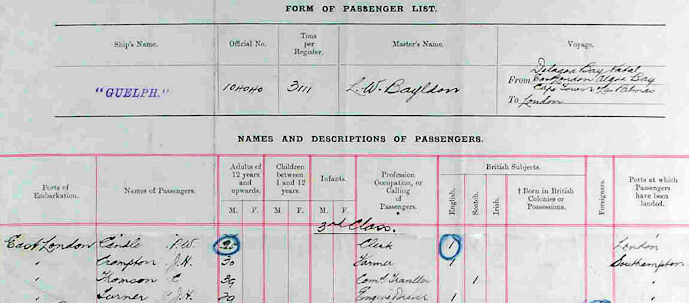 FORM OF PASSENGER LIST.
Ship's Name. Official No. Tons per Register. Master's Name. Voyage.
"GUELPH." 101010 3111 L. W. Bayldon From Delagoa Bay Natal
East London Algoa Bay
Cape Town & Las Palmas
To London
NAMES AND DESCRIPTIONS OF PASSENGERS.
Ports of Embarkation. Names of Passengers. Adults of 12 years and upwards. Children between 1 and 12 years. Infants. Profession Occupation, or Calling of Passengers. British Subjects. Foreigners. Ports at which Passengers have been landed.
English. Scotch. Irish. † Born in British Colonies or Possessions.
M. F. M. F. M. F.
3rd Class.
East London P.W. Clerk 1 London
" J.H. 30 Farmer 1 Southampton
" Thomson C 39 Coml Traveller 1 "
" Turner J.H. 29 Engine Driver